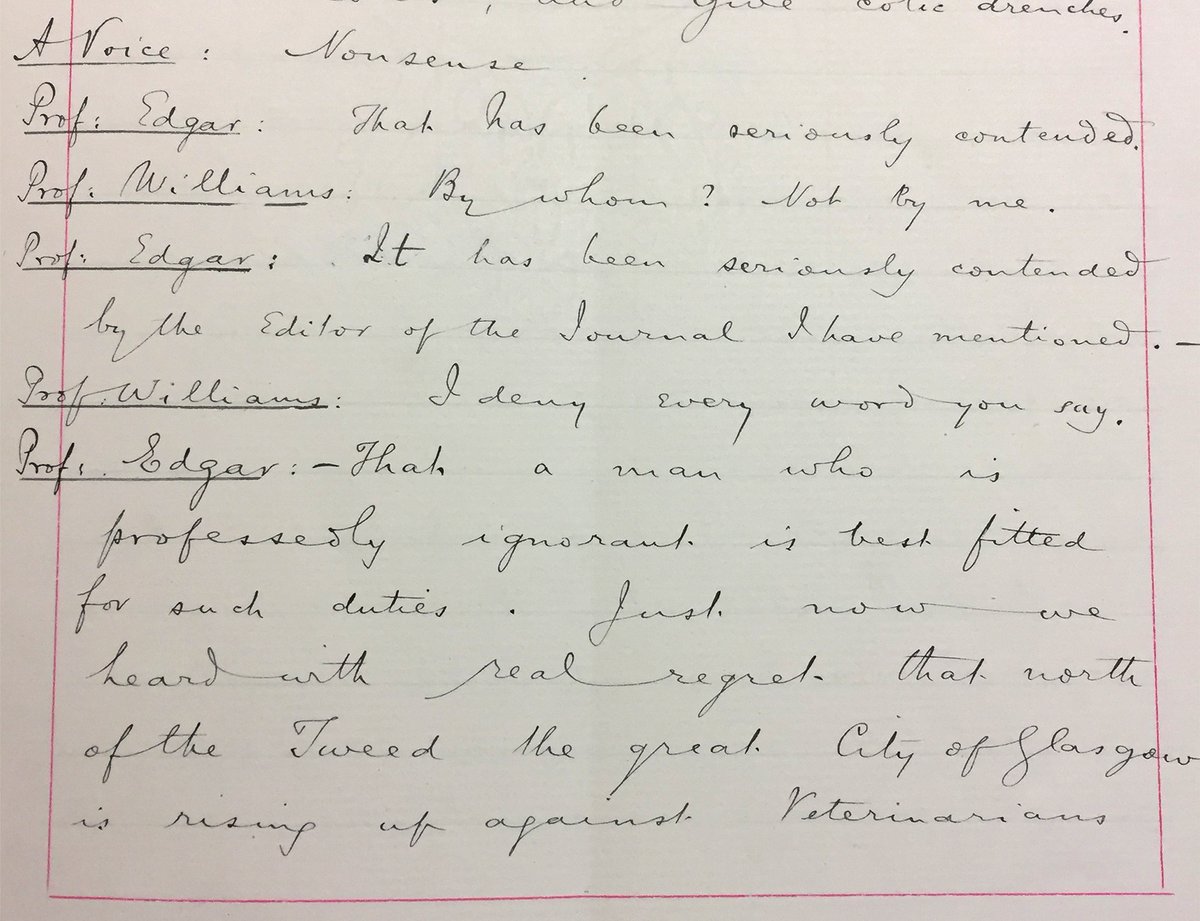 , and give colic drenches.
A Voice : Nonsense.
Prof: Edgar : That has been seriously contended.
Prof: Williams : By whom ? Not by me .
Prof: Edgar : It has been seriously contended
by the Editor of the Journal I have mentioned . —
Prof. Williams : I deny every word you say.
Prof: Edgar : — That a man who is
professedly ignorant is best fitted
for such duties . Just now we
heard with real regret that north
of the Tweed the great City of Glasgow
is rising up against Veterinarians